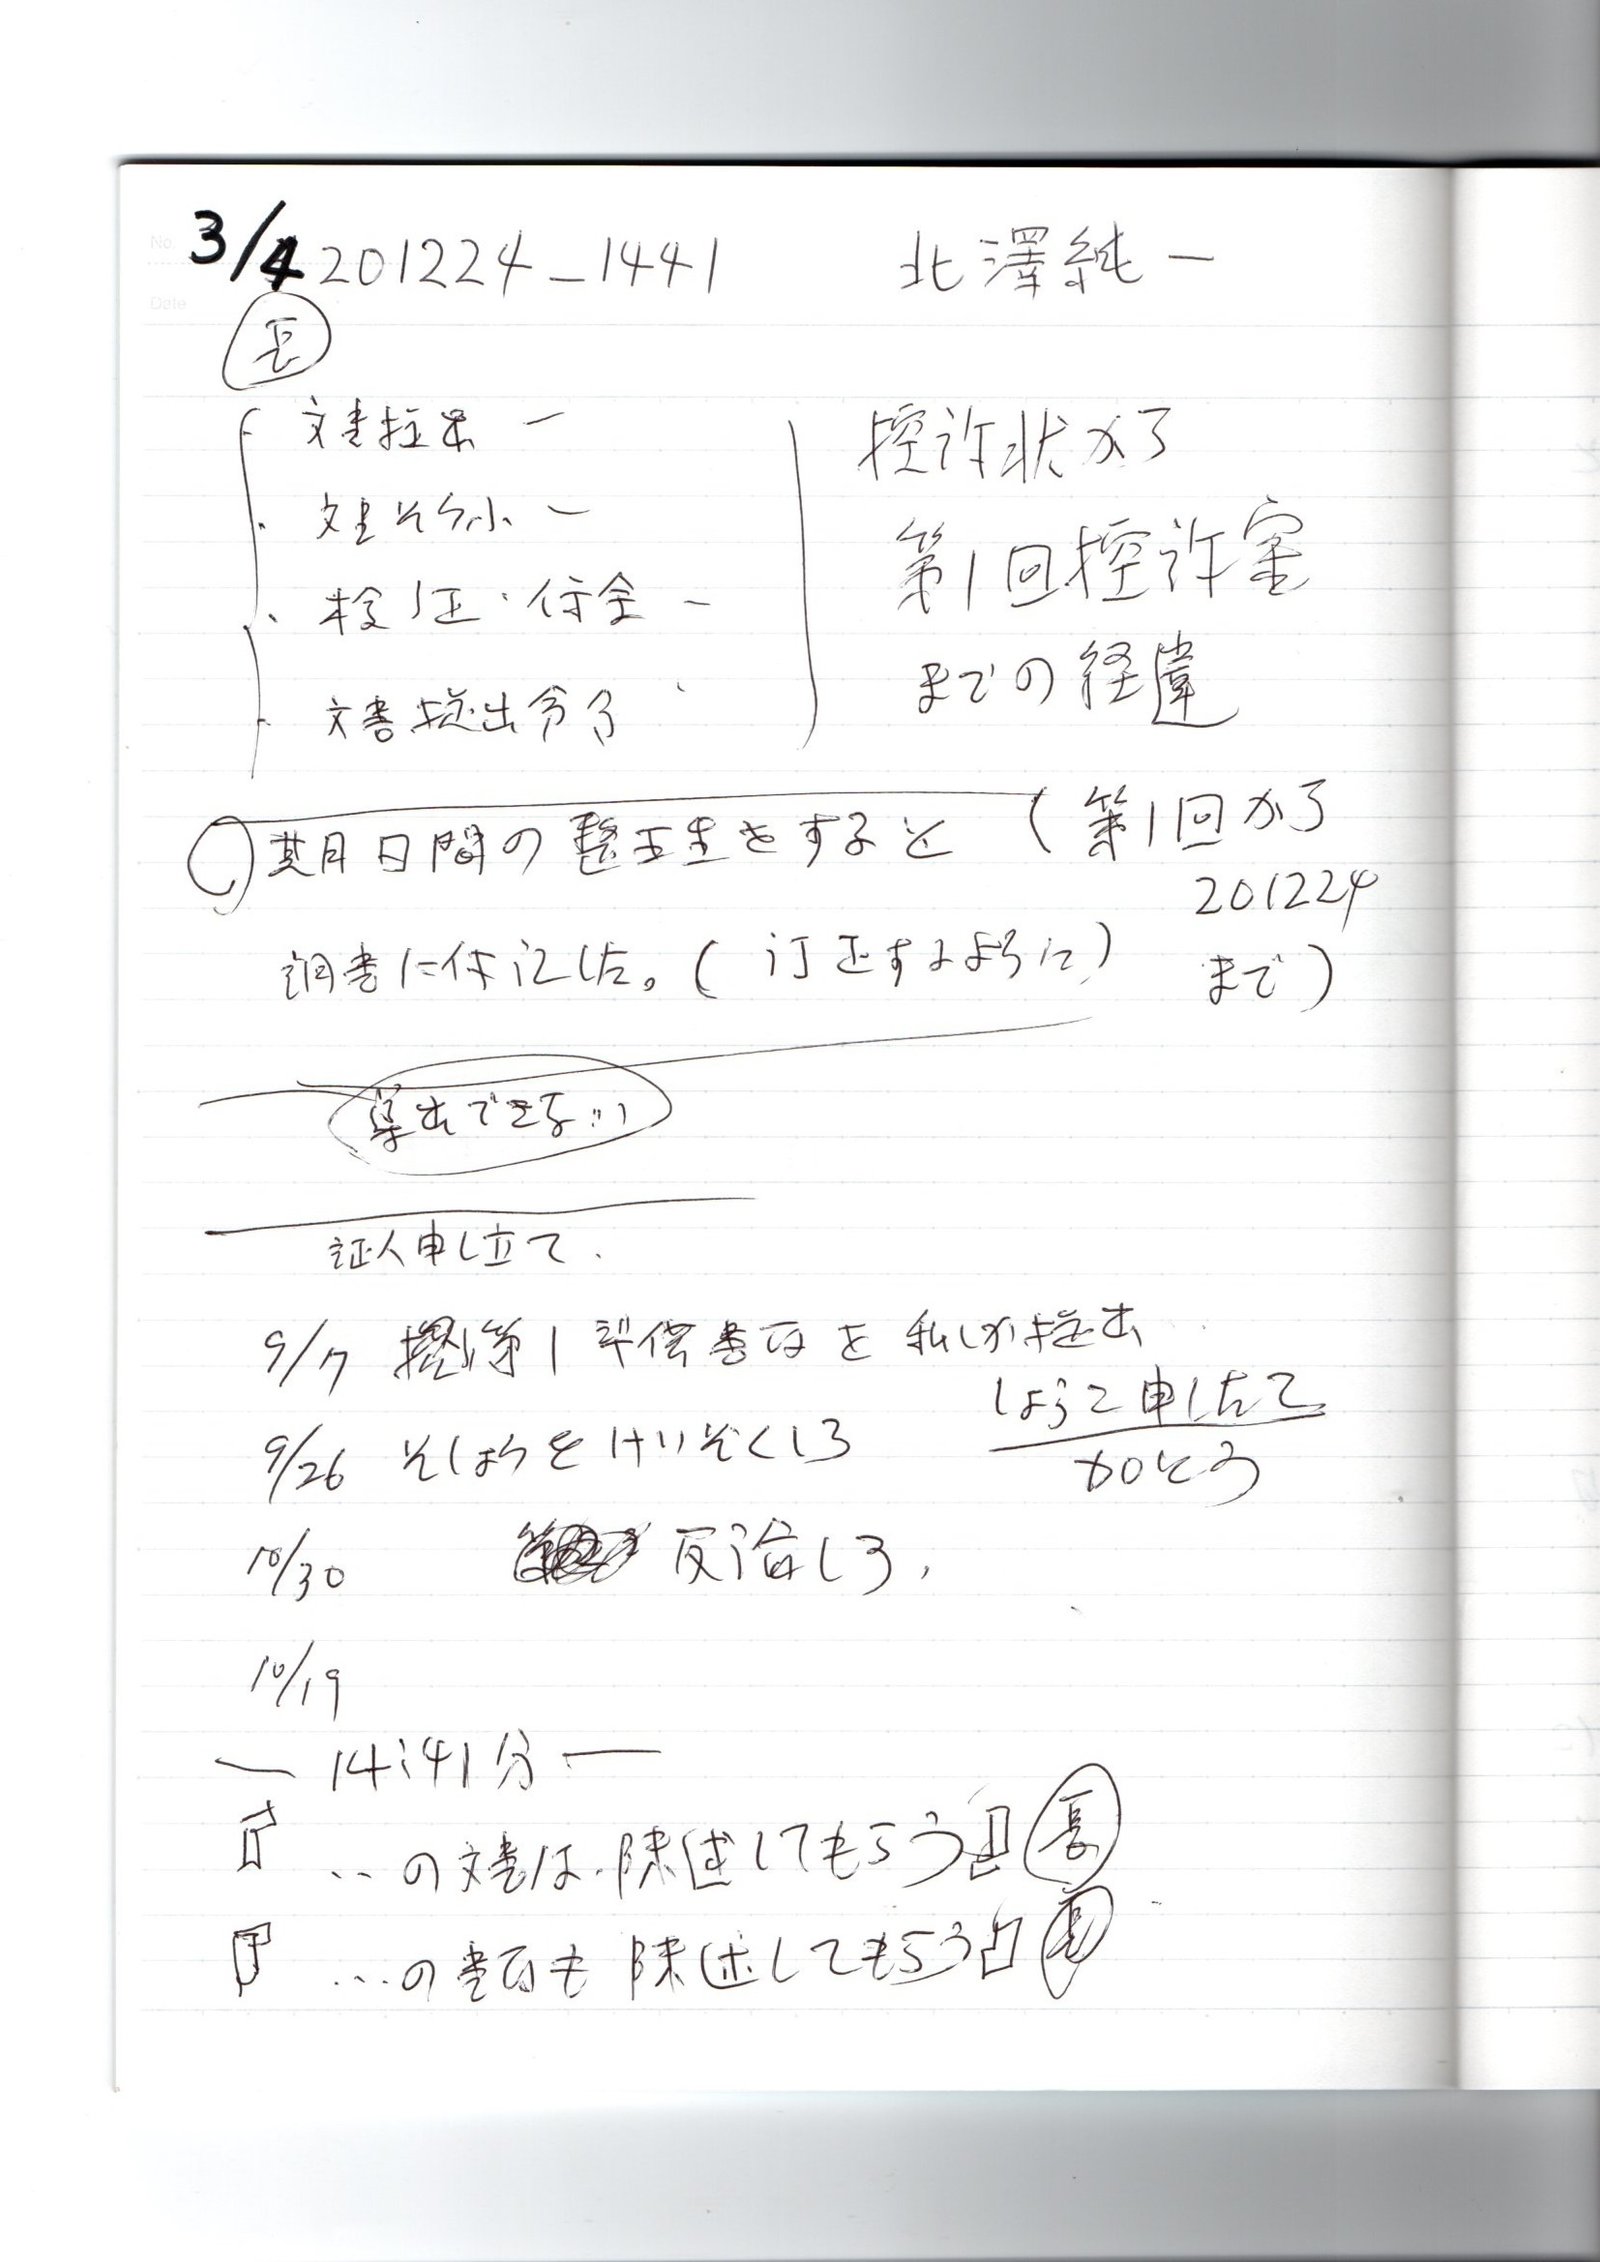 No.
Date
3/4 201224_1441 北澤純一
長
・文書提出 ー
・文書そうふ ー
・検証・
・文書提出命令
控訴状から
第1回控訴審
までの経緯
期日間の整理をすると (第1回から
201224
まで)
調書に休記した。(訂正するように)
できない
証人申し立て.
9/7 控第1準備書面を 私が提出
しょうこ申したて
かくとう
9/26 そしょうをけいぞくしろ
10/30 反論しろ.
10/19
ー 14:41分 ー
「 ‥の文書は.陳述してもらう」 長
「 …の書面も 陳述してもらう」 長